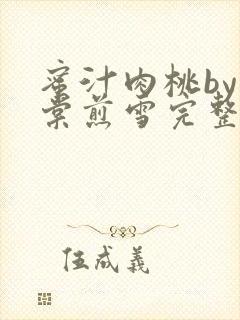 蜜汁肉桃by
棠煎雪完整
伍成義